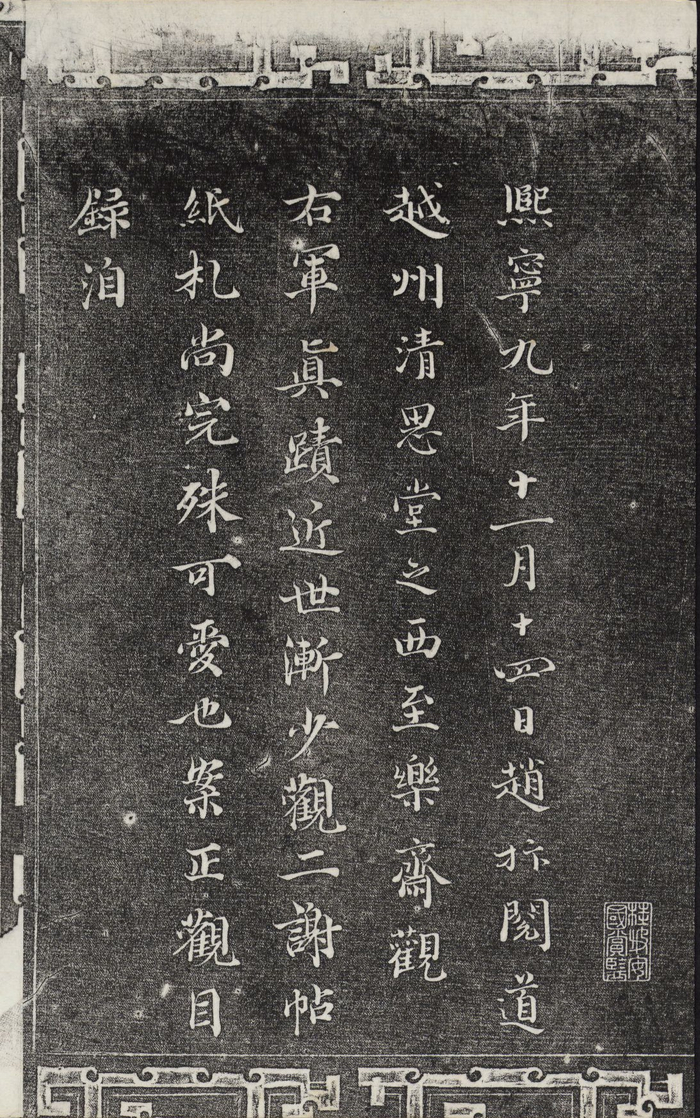 熙寧九年十一月十四日趙抃閱道
越州清思堂之西至樂齋觀
右軍眞蹟近世漸少觀二謝帖
紙札尚完殊可愛也案正觀目
録洎
桂坡安
國賞鑒